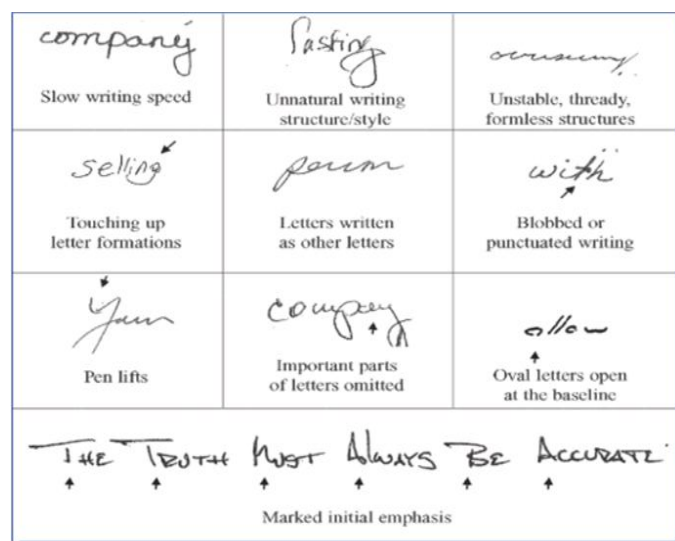 company
Slow writing speed
lasting
Unnatural writing
structure/style
Unstable, thready,
formless structures
selling
Touching up
letter formations
person
Letters written
as other letters
with
Blobbed or
punctuated writing
Your
Pen lifts
company
Important parts
of letters omitted
allow
Oval letters open
at the baseline
THE TRUTH MUST ALWAYS BE ACCURATE
Marked initial emphasis